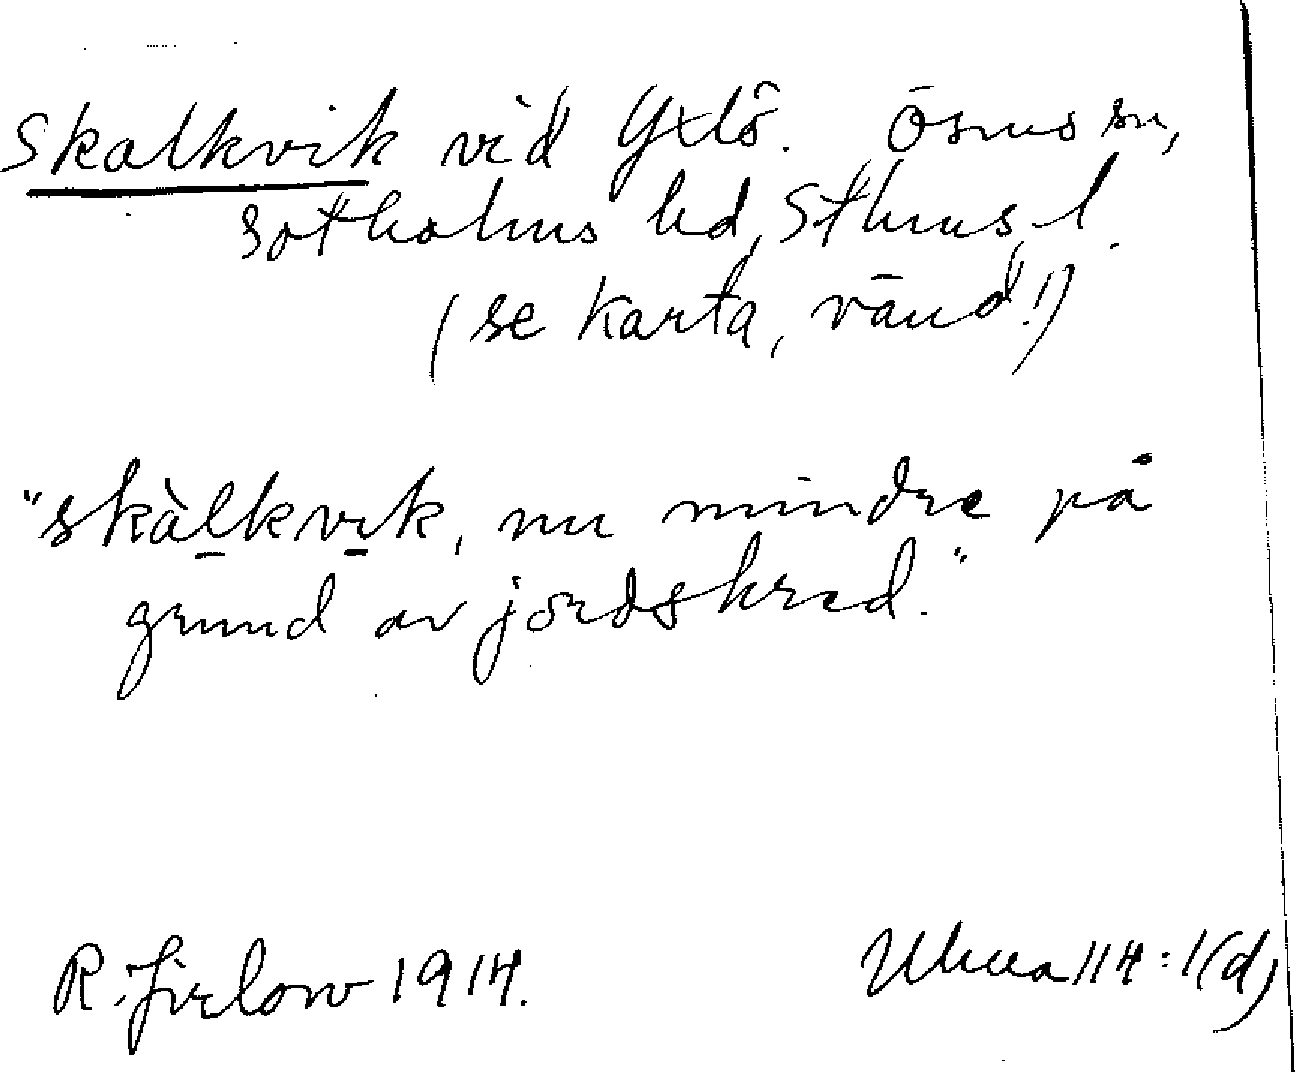 Skalkvik vid Yxlö. Ösmo sn,
Sotholms hd, Sthms l.
(se karta, vänd!)
"skàl̠kvi̠k, nu mindre på
grund av jordskred."
R. Jirlow 1914.
114:1(d)